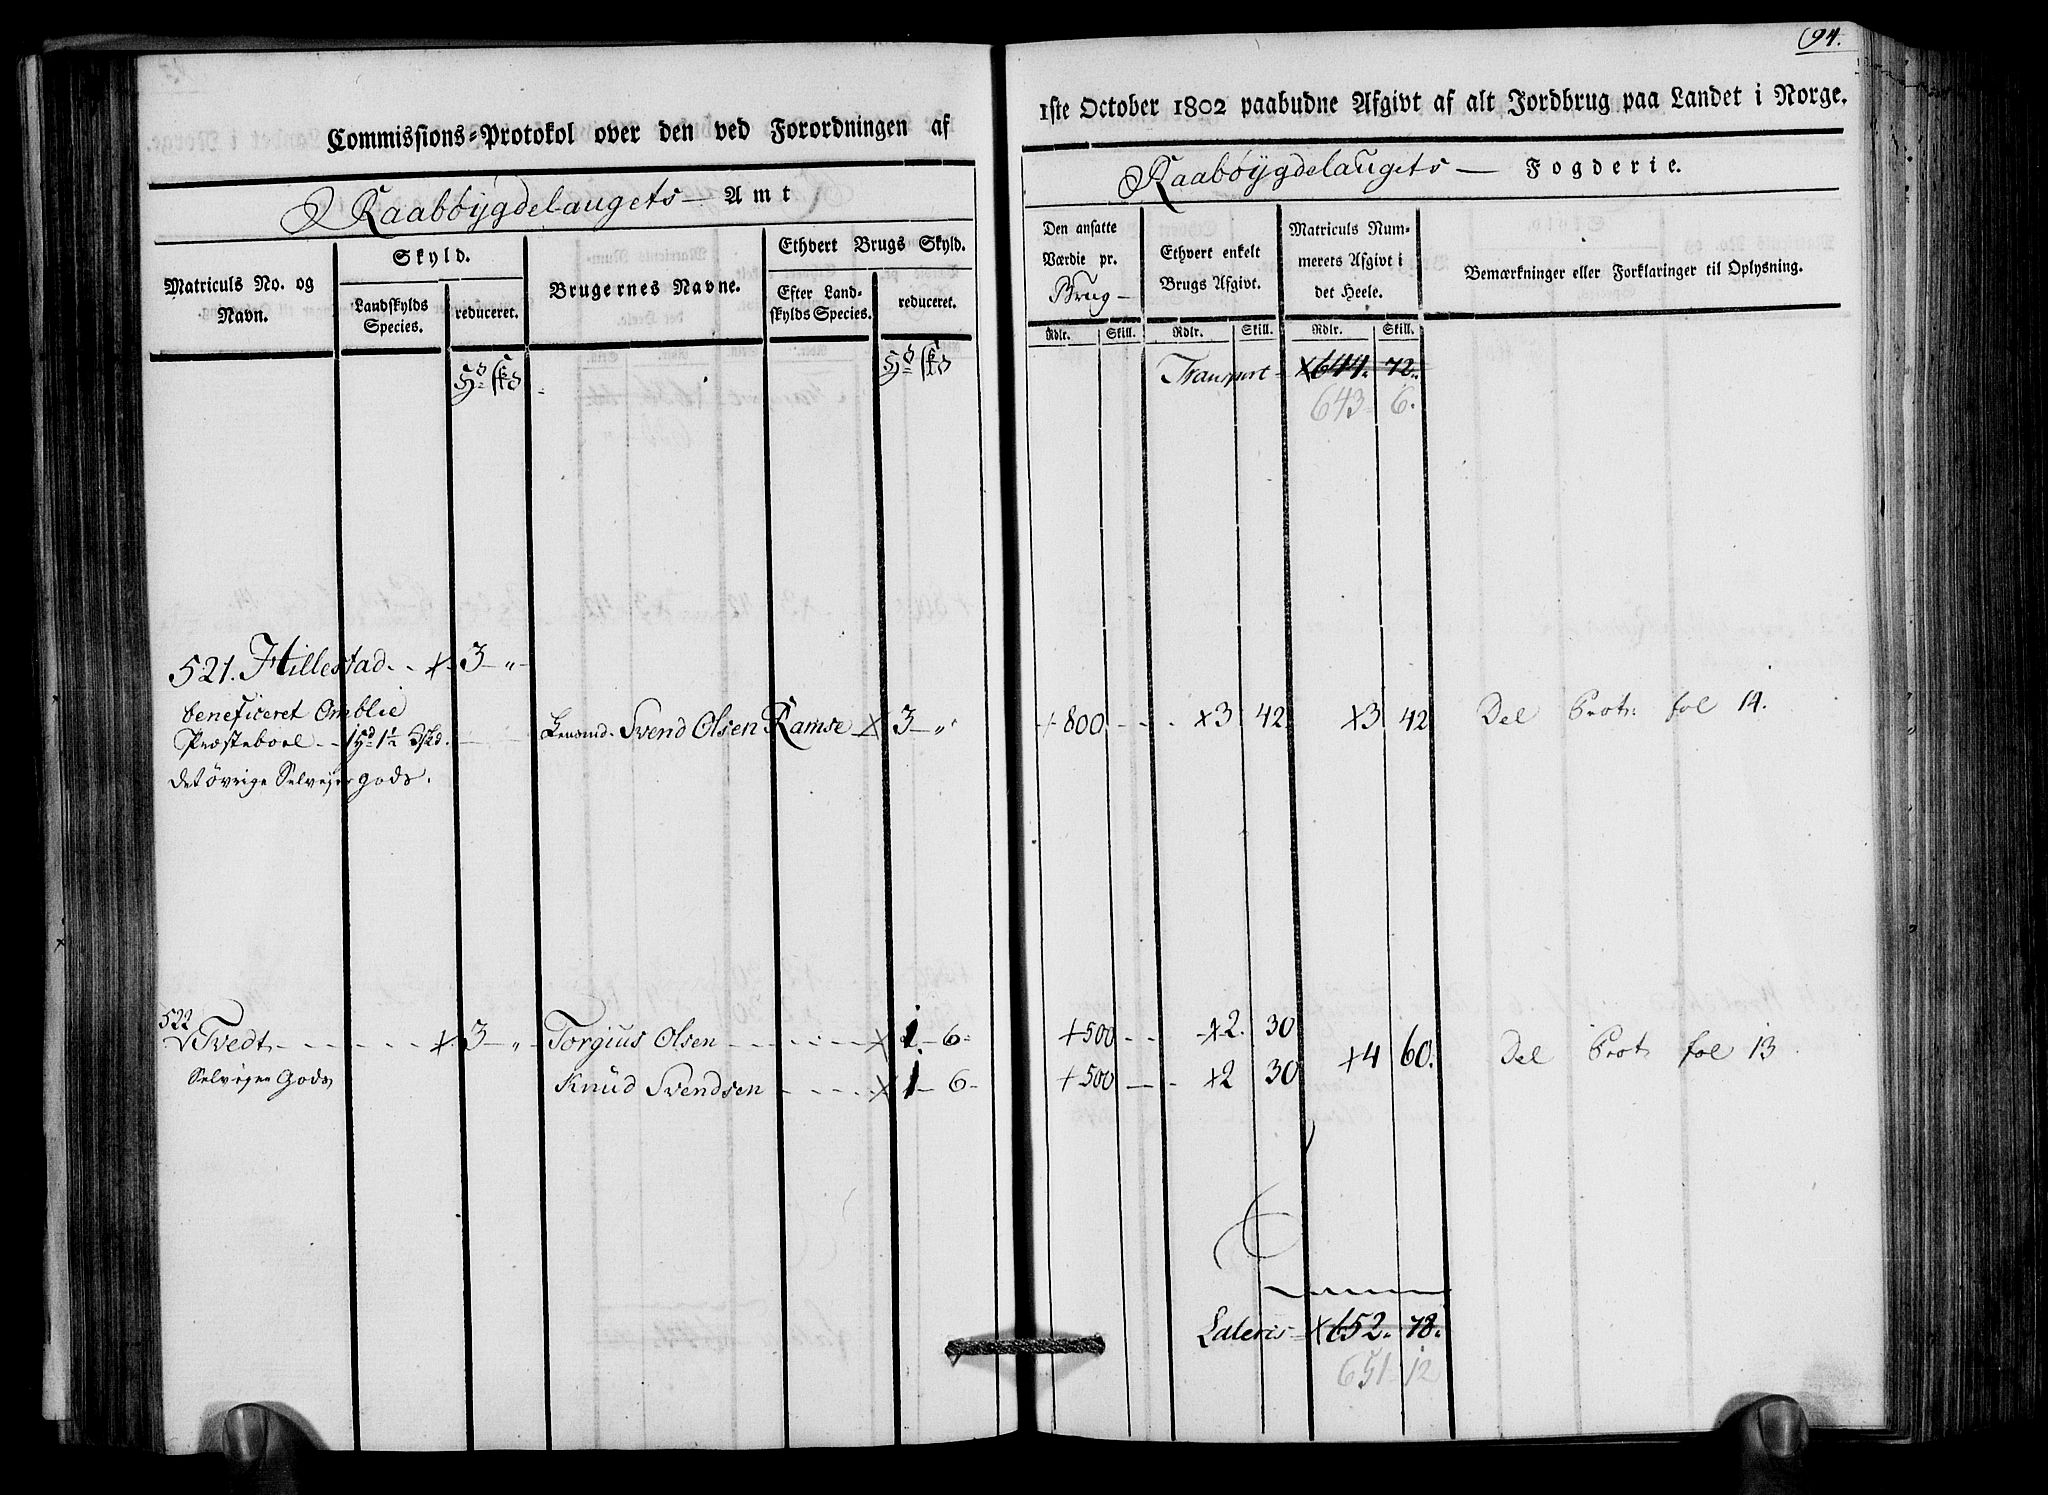 Commissions-Protokol over den ved Forordningen af
Raabøygdelaugets Amt
Matriculs No. og Navn.
Skyld.
Landskylds Species.
reduceret.
Brugernes Navne.
Ethvert Brugs Skyld.
Efter Landskylds Species.
reduceret.
521. Hillestad - - x 3 - „ -
beneficeret Omblie
Præsteboel - 1 Hd 1½ Skd.
det øvrige Selveyer gods.
Lensmd. Svend Olsen Ramse x 3 - „
522
Tvedt - - - - x 3 - „ - Torgius Olsen - - - - x 1 - 6 -
Selveyer Gods
Knud Svendsen - - - - x 1 - 6 -
94.
1ste October 1802 paabudne Afgivt af alt Jordbrug paa Landet i Norge.
Raabøygdelaugets — Fogderie.
Den ansatte Værdie pr. Brug -
Ethvert enkelt Brugs Afgivt.
Matriculs Nummerets Afgivt i det Heele.
Bemærkninger eller Forklaringer til Oplysning.
Rdlr. Skill. Rdlr. Skill. Rdlr. Skill.
Transport - x 644. 72.
643 6.
+ 800 - - - x3 42 x3 42 Del Prot: fol 14.
+ 500 - - - x 2. 30
x4 60. Del Prot fol 13
+ 500 - - - x2 30
Lateris x 652. 78.
651 12